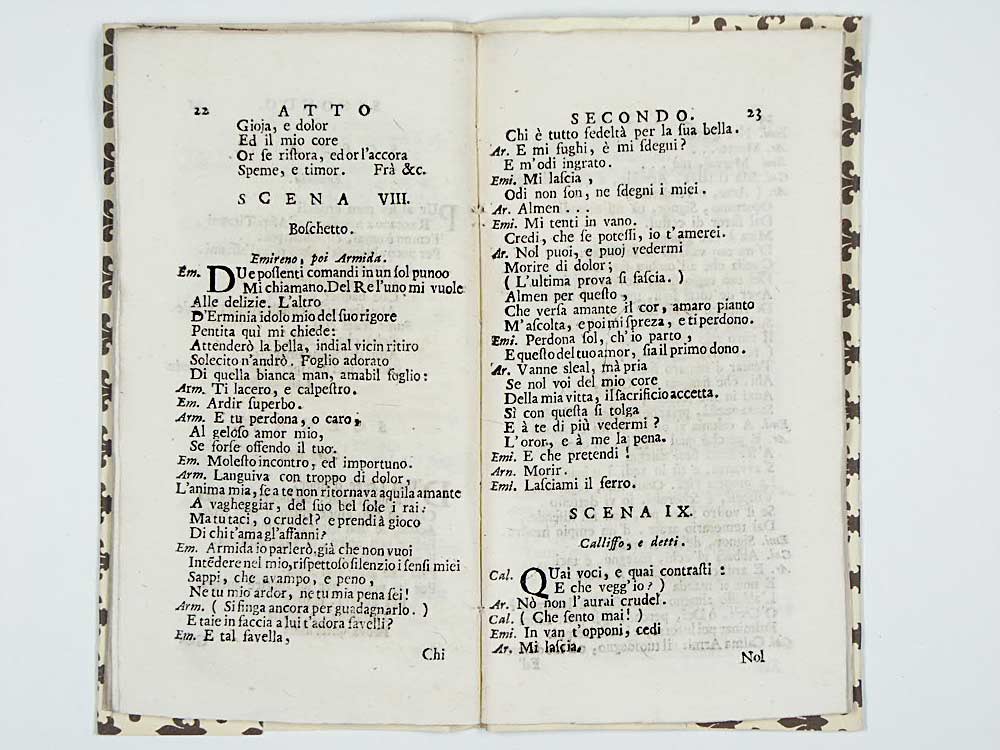 22 ATTO
Gioja, e dolor
Ed il mio core
Or ſe riſtora, ed or l'accora
Speme, e timor. Frà &c.
SCENA VIII.
Boſchetto.
Emireno, poi Armida.
Em. DUe poſſenti comandi in un ſol punoo
Mi chiamano. Del Re l'uno mi vuole
Alle delizie. L'altro
D'Erminia idolo mio del ſuo rigore
Pentita quì mi chiede:
Attenderò la bella, indi al vicin ritiro
Solecito n'andrò. Foglio adorato
Di quella bianca man, amabil foglio:
Arm. Ti lacero, e calpeſtro.
Em. Ardir ſuperbo.
Arm. E tu perdona, o caro,
Al geloſo amor mio,
Se forſe offendo il tuo.
Em. Moleſto incontro, ed importuno.
Arm. Languiva con troppo di dolor,
L'anima mia, ſe a te non ritornava aquila amante
A vagheggiar, del ſuo bel ſole i rai:
Ma tu taci, o crudel? e prendi à gioco
Di chi t'ama gl'affanni?
Em. Armida io parlerò, già che non vuoi
Intēdere nel mio, riſpettoſo ſilenzio i ſenſi miei
Sappi, che avampo, e peno,
Ne tu mio ardor, ne tu mia pena ſei!
Arm. ( Si finga ancora per guadagnarlo. )
E taie in faccia a lui t'adora favelli?
Em. E tal favella,
Chi
SECONDO. 23
Chi è tutto fedeltà per la ſua bella.
Ar. E mi fughi, è mi ſdegni?
E m'odi ingrato.
Emi. Mi laſcia,
Odi non ſon, ne ſdegni i miei.
Ar. Almen . . .
Emi. Mi tenti in vano.
Credi, che ſe poteſſi, io t'amerei.
Ar. Nol puoi, e puoj vedermi
Morire di dolor;
( L'ultima prova ſi faſcia. )
Almen per queſto,
Che verſa amante il cor, amaro pianto
M'aſcolta, e poi mi ſpreza, e ti perdono.
Emi. Perdona ſol, ch'io parto,
E queſto del tuo amor, ſia il primo dono.
Ar. Vanne ſleal, mà pria
Se nol voi del mio core
Della mia vitta, il ſacrificio accetta.
Sì con queſta ſi tolga
E à te di più vedermi?
L'oror, e à me la pena.
Emi. E che pretendi!
Arn. Morir.
Emi. Laſciami il ferro.
SCENA IX.
Calliſſo, e detti.
Cal. QUai voci, e quai contraſti:
E che vegg'io? )
Ar. Nò non l'aurai crudel.
Cal. ( Che ſento mai! )
Emi. In van t'opponi, cedi
Ar. Mi laſcia.
Nol